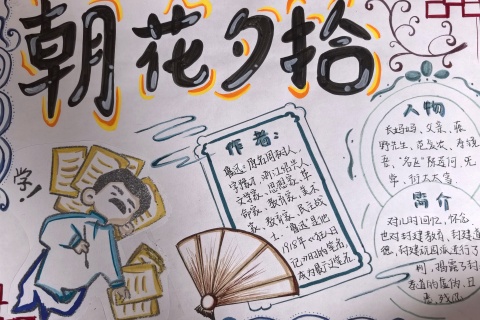 朝花夕拾
学!
作者:
鲁迅:原名周树人,
字豫才,浙江绍兴人
文学家、思想家、革
命家、教育家、美术
家、教育家、民主战
士。"鲁迅"是他
1918年《狂人日
记》时的笔名
成为最广笔名
人物
长妈妈,父亲,藤
野先生,范爱农,寿镜
吾,"名医"陈莲河,无
常,衍太太等
简介
对儿时回忆,怀念
也对封建教育,封建道
德,封建顽固派进行了
判,揭露了封
孝道的虚伪、